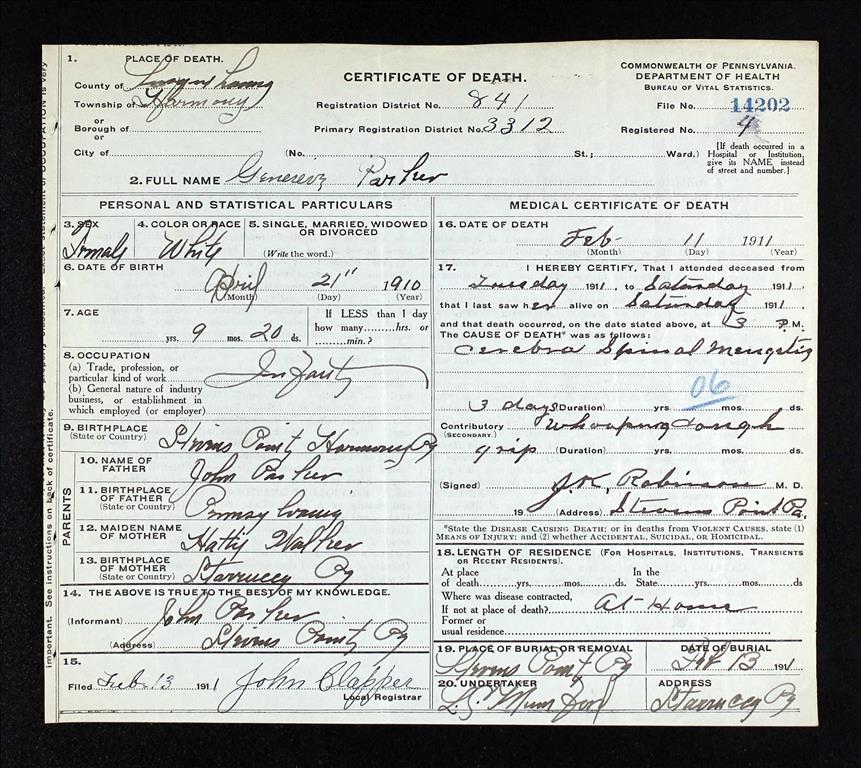 1. PLACE OF DEATH.
County of
Township of Harmony
or
Borough of
or
City of
CERTIFICATE OF DEATH.
Registration District No. 841
Primary Registration District No. 3312
(No. St.; Ward.)
COMMONWEALTH OF PENNSYLVANIA.
DEPARTMENT OF HEALTH
BUREAU OF VITAL STATISTICS.
File No. 14202
Registered No. 4
[If death occurred in a
Hospital or Institution,
give its NAME instead
of street and number.]
2. FULL NAME Parker
PERSONAL AND STATISTICAL PARTICULARS
3. SEX
Female
4. COLOR OR RACE
White
5. SINGLE, MARRIED, WIDOWED
OR DIVORCED
(Write the word.)
6. DATE OF BIRTH
April 21" 1910
(Month) (Day) (Year)
7. AGE
yrs. 9 mos. 20 ds.
If LESS than 1 day
how many hrs. or
min.?
8. OCCUPATION
(a) Trade, profession, or
particular kind of work
(b) General nature of industry
business, or establishment in
which employed (or employer)
9. BIRTHPLACE
(State or Country) Harmony Pa
PARENTS
10. NAME OF
FATHER
John Parker
11. BIRTHPLACE
OF FATHER
(State or Country)
12. MAIDEN NAME
OF MOTHER
Walker
13. BIRTHPLACE
OF MOTHER
(State or Country)
Starrucca Pa
14. THE ABOVE IS TRUE TO THE BEST OF MY KNOWLEDGE.
(Informant) John Parker
(Address) Stevens Point Pa
15.
Filed Feb 13 1911 John Clapper
Local Registrar
MEDICAL CERTIFICATE OF DEATH
16. DATE OF DEATH
Feb 11 1911
(Month) (Day) (Year)
17. I HEREBY CERTIFY, That I attended deceased from
Tuesday 1911, to Saturday 1911,
that I last saw her alive on Saturday 1911
and that death occurred, on the date stated above, at 3 P. M.
The CAUSE OF DEATH* was as follows:
Cerebra Spinal
06
3 days (Duration) yrs. mos. ds.
Contributory Whooping Cough
(SECONDARY.)
grip (Duration) yrs. mos. ds.
(Signed) J.K. Robinson M. D.
19 (Address) Stevens Point Pa.
*State the DISEASE CAUSING DEATH; or in deaths from VIOLENT CAUSES, state (1)
MEANS OF INJURY; and (2) whether ACCIDENTAL, SUICIDAL, OR HOMICIDAL.
18. LENGTH OF RESIDENCE (FOR HOSPITALS, INSTITUTIONS, TRANSIENTS
OR RECENT RESIDENTS).
At place
of death yrs. mos. ds. In the
State yrs. mos. ds
Where was disease contracted,
If not at place of death? At Home
Former or
usual residence
19. PLACE OF BURIAL OR REMOVAL
Stevens Point Pa
DATE OF BURIAL
Feb 13 1911
20. UNDERTAKER
ADDRESS
Starrucca Pa
important. See instructions on back of certificate.